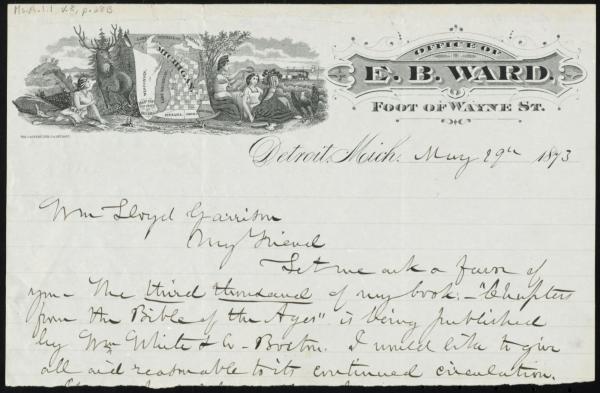 OFFICE OF
E. B. WARD.
FOOT OF WAYNE ST.
MICHIGAN
Detroit, Mich. May 29th 1873
Wm Lloyd Garrison
My Friend
Let me ask a favor of
you - The third thousand of my book - "Chapters
from the Bible of the Ages" is being published
by Wm White & Co - Boston. I would like to give
all aid reasonable to its continued circulation.